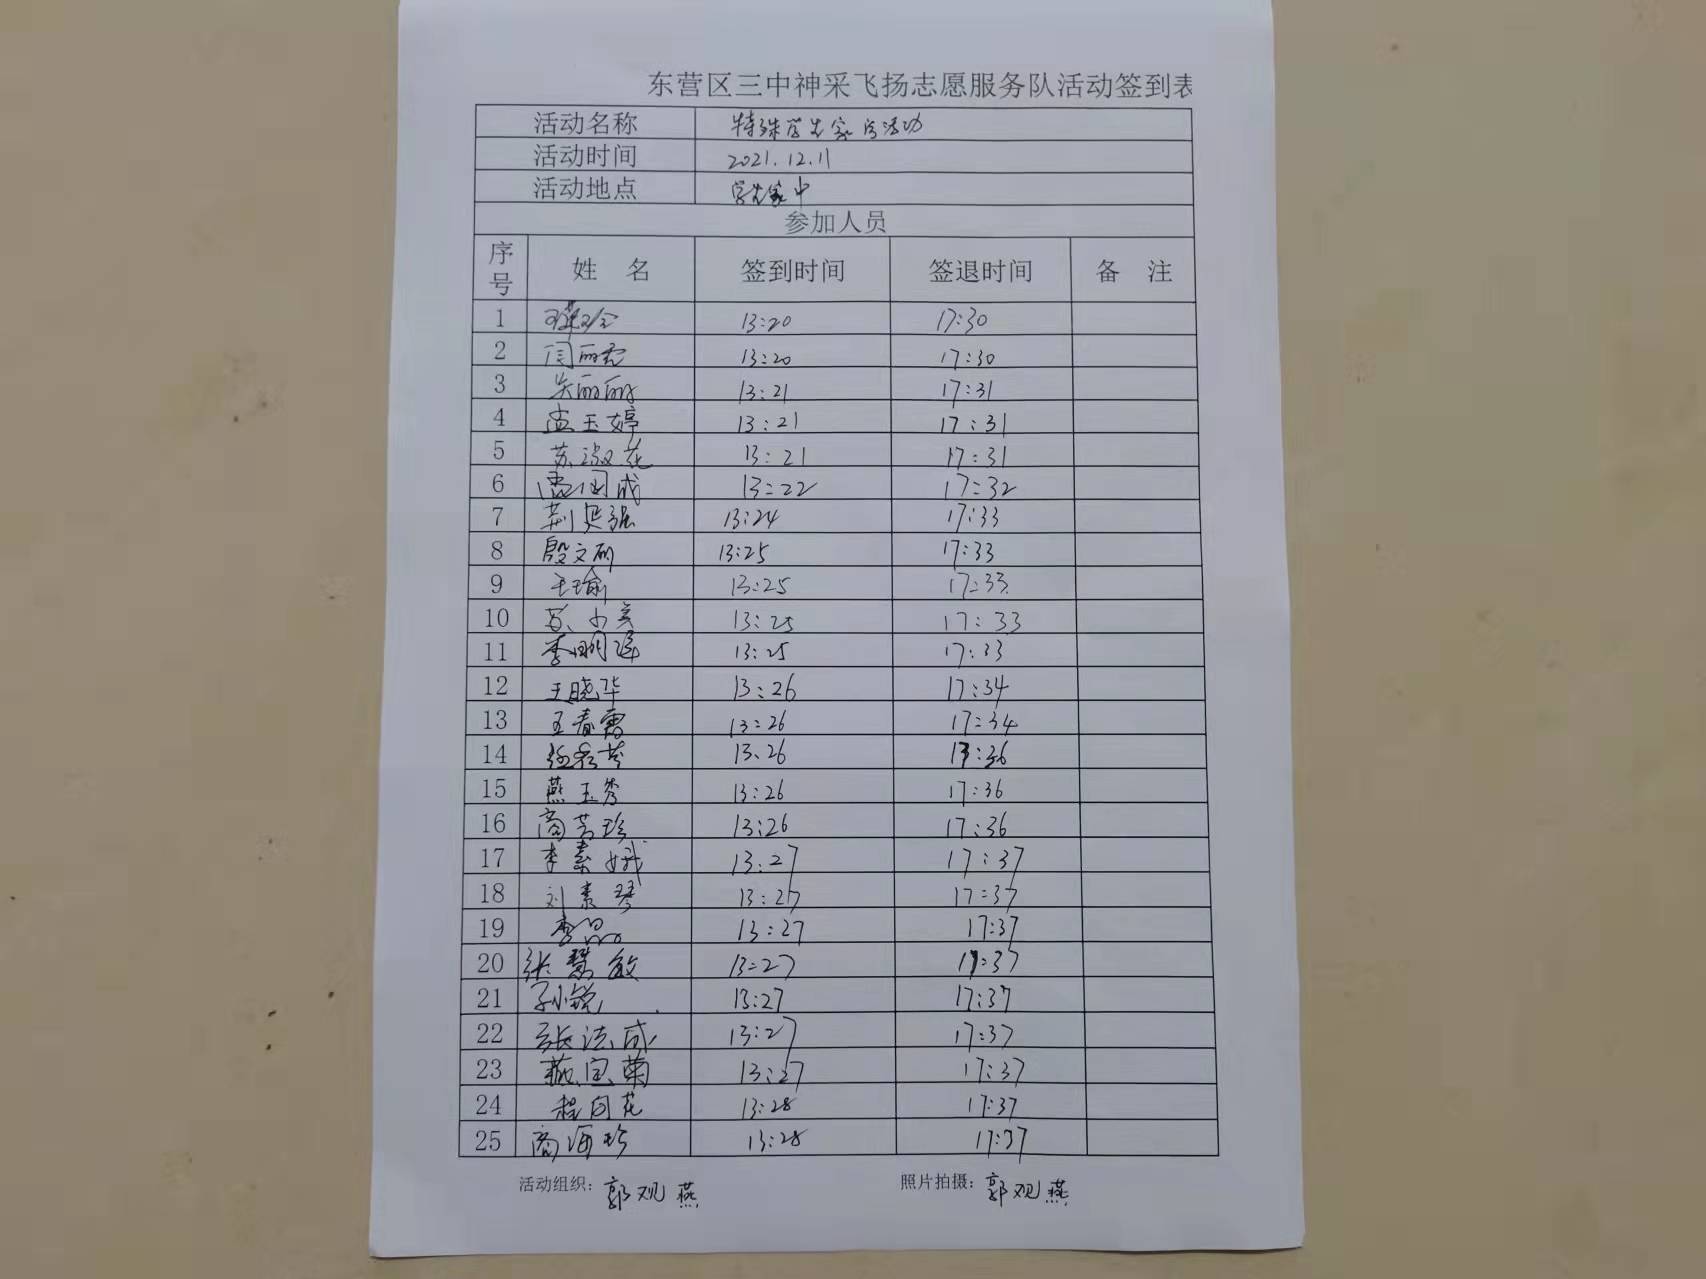 东营区三中神采飞扬志愿服务队活动签到表
活动名称 特殊学生家访活动
活动时间 2021.12.11
活动地点 学生家中
参加人员
序号 姓 名 签到时间 签退时间 备 注
1 13:20 17:30
2 闫丽君 13:20 17:30
3 朱丽丽 13:21 17:31
4 孟玉婷 13:21 17:31
5 苏淑花 13:21 17:31
6 雷国成 13:22 17:32
7 荆延强 13:24 17:33
8 殷文丽 13:25 17:33
9 王瑜 13:25 17:33
10 苏小亮 13:25 17:33
11 李明 13:25 17:33
12 王晓华 13:26 17:34
13 王春霞 13:26 17:34
14 13:26 17:36
15 燕玉秀 13:26 17:36
16 商芳珍 13:26 17:36
17 李素娥 13:27 17:37
18 刘素琴 13:27 17:37
19 李晶 13:27 17:37
20 张慧敏 13:27 17:37
21 孙小锐 13:27 17:37
22 张法成 13:27 17:37
23 臧宝菊 13:27 17:37
24 程同花 13:28 17:37
25 商海珍 13:28 17:37
活动组织：郭观燕 照片拍摄：郭观燕